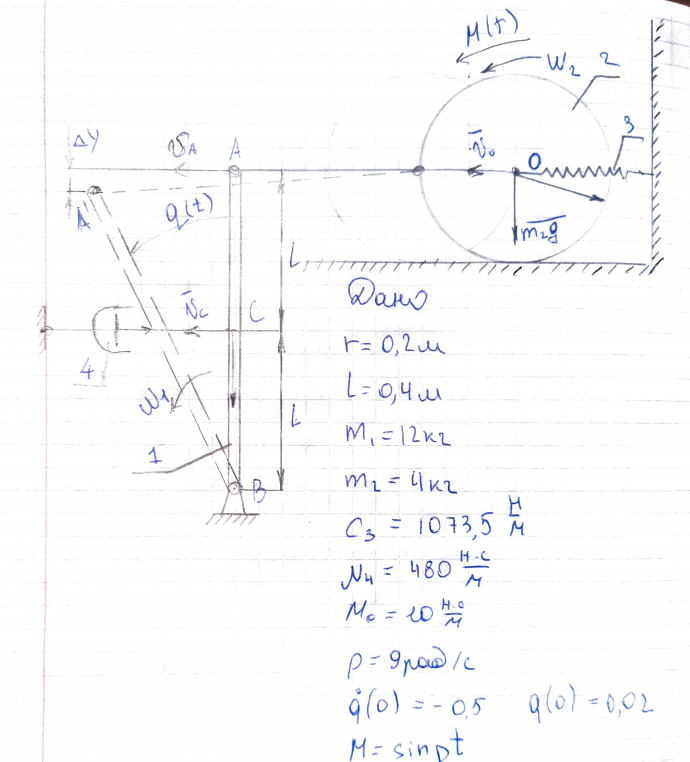 M(t)
ω₂ 2
3
ΔY
v_A A
v̄₀ O
A'
q(t)
m̄₂g
L
v̄_c C
4
Дано
r = 0,2 м
ω₁
L
l = 0,4 м
m₁ = 12 кг
1
m₂ = 4 кг
B
C₃ = 1073,5 Н/м
μ₄ = 480 Н·с/м
M₀ = 10 Н·с/м
p = 9 рад/с
q̇(0) = -0,5 q(0) = 0,02
M = sin pt